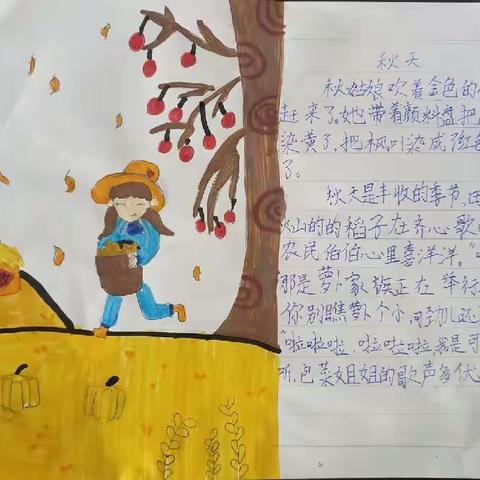 秋天
秋姑娘吹着金色的
赶来了。她带着颜料盘把
染黄了,把枫叶染成了红色
了。
秋天是丰收的季节,
山的的稻子在齐心歌
农民伯伯心里喜洋洋。“
那是萝卜家族正在举行
你别瞧萝卜个小,可劲儿还
“啦啦啦,啦啦啦啦,我是可
听,包菜姐姐的歌声多优